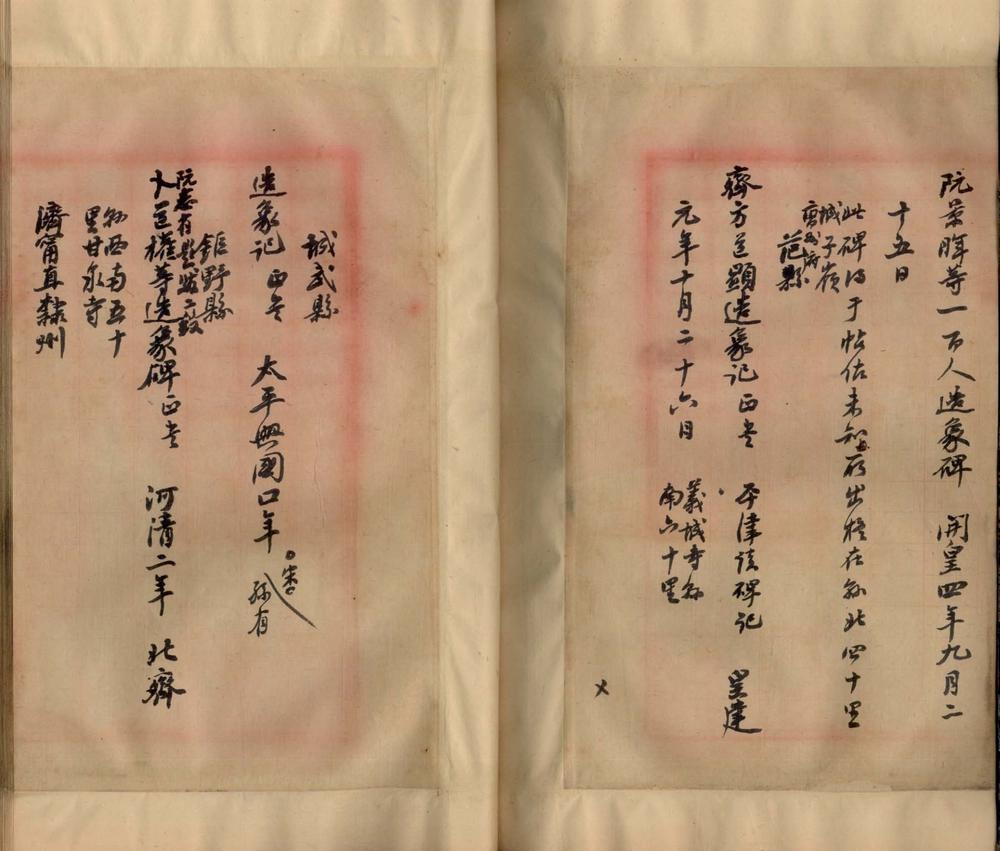 阮景暉等一百人造象碑 開皇四年九月二
十五日
此碑得于帖估未知所出檢在縣北四十里
城子嶺
范縣
齊方邑顯造象記 正書 平津讀碑記 皇建
元年十月二十六日 義城寺縣
南六十里
城武縣
造象記 正書 太平興國口年 宋 孫有
鉅野縣
阮志有縣誌二說
卜邑權等造象碑 正書 河清二年 北齊
縣西南五十
里甘泉寺
濟甯直隸州